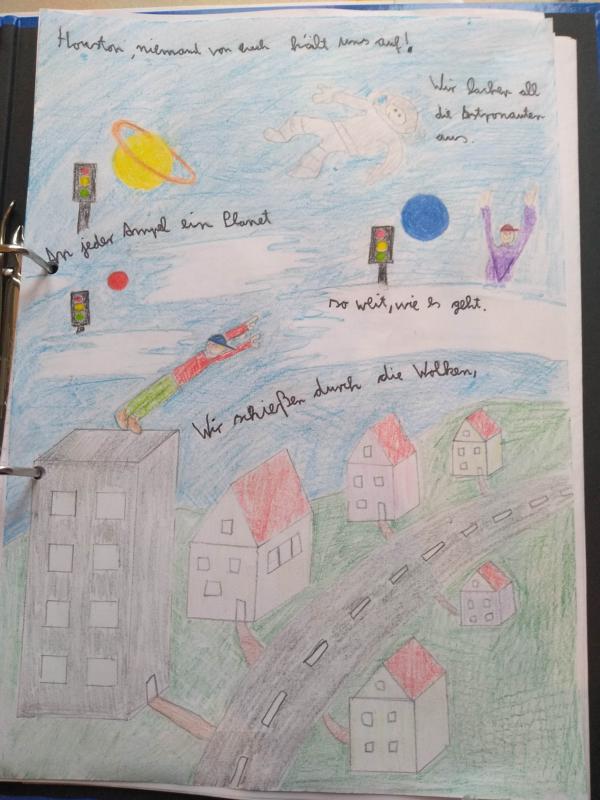 Houston, niemand von euch hält uns auf!
Wir lachen all
die Astronauten
aus.
An jeder Ampel ein Planet
so weit, wie es geht.
Wir schießen durch die Wolken,